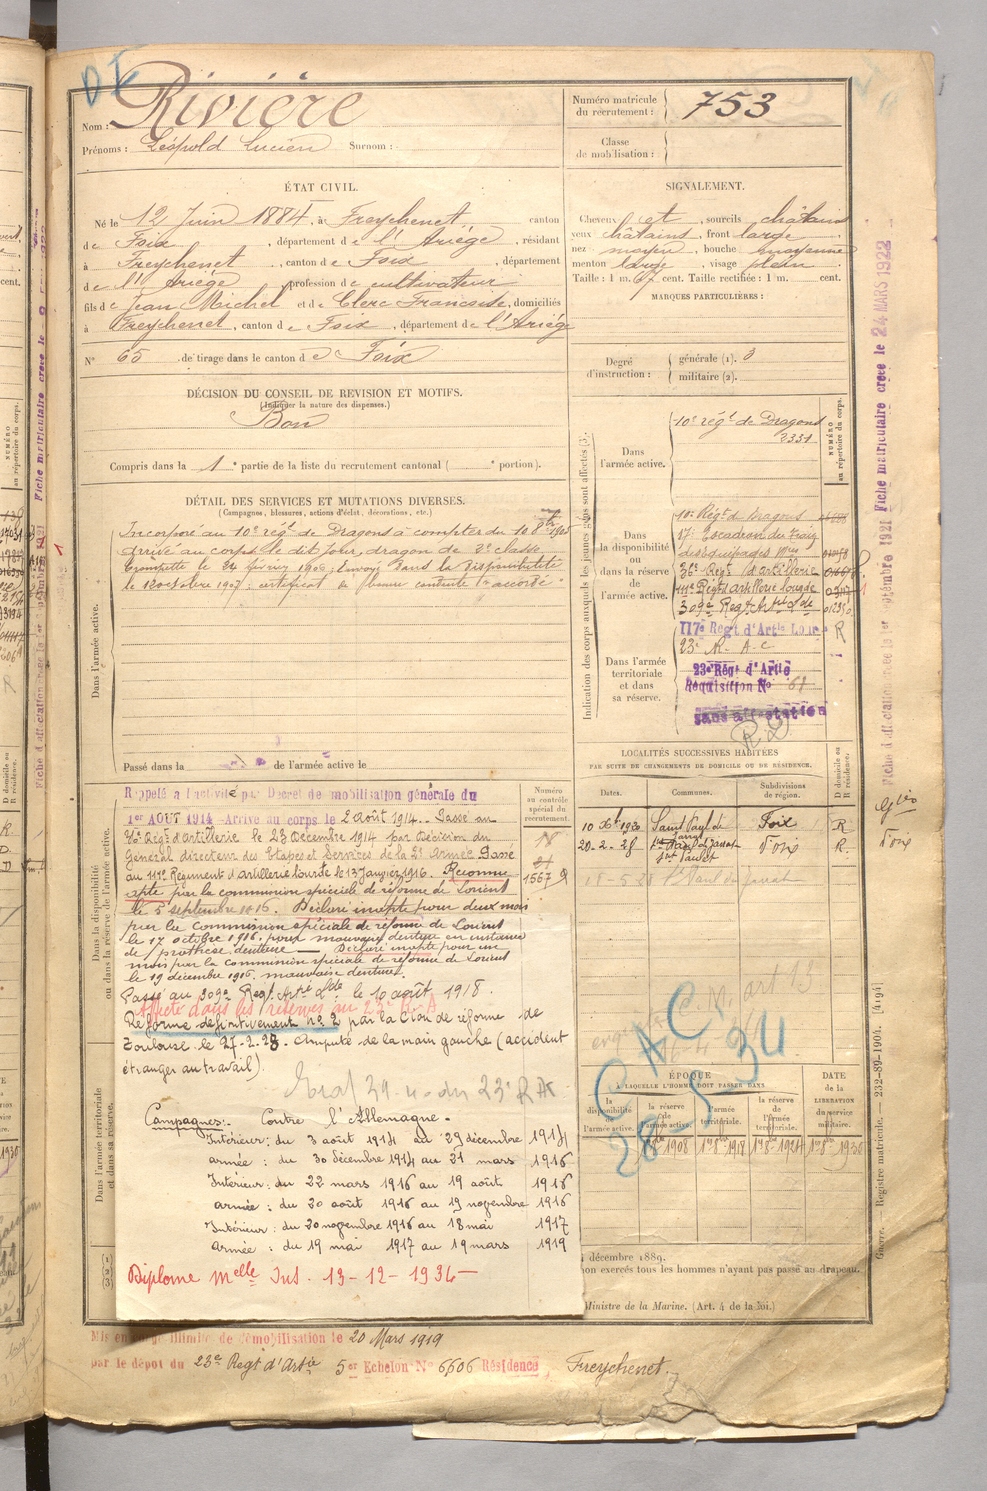 Nom : Rivière
Prénoms : Léopold Lucien Surnom :
Numéro matricule du recrutement : 753
Classe de mobilisation :
ÉTAT CIVIL.
Né le 12 Juin 1884, à Freychenet canton
de Foix, département de l'Ariège, résidant
à Freychenet, canton de Foix, département
de l'Ariège, profession de cultivateur
fils de Jean Michel et de Clerc Francoise, domiciliés
à Freychenet, canton de Foix, département de l'Ariège
N° 65 de tirage dans le canton de Foix
SIGNALEMENT.
Cheveux et, sourcils châtains
yeux châtains, front large
nez moyen, bouche moyenne
menton large, visage plein
Taille : 1 m. cent. Taille rectifiée : 1 m. cent.
MARQUES PARTICULIÈRES :
Degré d'instruction : générale (1). 3
militaire (2).
DÉCISION DU CONSEIL DE REVISION ET MOTIFS.
(Indiquer la nature des dispenses.)
Bon
Compris dans la 1e partie de la liste du recrutement cantonal ( e portion).
DÉTAIL DES SERVICES ET MUTATIONS DIVERSES.
(Campagnes, blessures, actions d'éclat, décorations, etc.)
Incorporé au 10e régt de Dragons à compter du 10 8bre 1905
arrivé au corps le dit jour, dragon de 2e classe
Trompette le 24 février 1906; Envoyé dans la disponibilité
le 12 octobre 1907; certificat de bonne conduite accordé
Dans l'armée active.
Passé dans la de l'armée active le
Rappelé à l'activité par Décret de mobilisation générale du
1er AOUT 1914 Arrivé au corps le 2 août 1914. Passé au
36e Régt d'artillerie le 23 Décembre 1914 par Décision du
Général directeur des Etapes et Services de la 2e Armée Passé
au 111e Régiment d'Artillerie lourde le 13 Janvier 1916. Reconnu
apte par la commission spéciale de réforme de Lorient
le 5 septembre 1916. Déclaré inapte pour deux mois
par la Commission spéciale de réforme de Lorient
le 17 octobre 1916, pour mauvaise denture en instance
de prothèse dentaire — Déclaré inapte pour un
mois par la Commission spéciale de réforme de Lorient
le 19 décembre 1916. mauvaise denture.
Passé au 309e Regt Artie Lde le 10 août 1918.
Affecté dans les réserves au 23e R. A
Réformé définitivement n° 2 par la Cion de réforme de
Toulouse le 27-2-28. Amputé de la main gauche (accident
étranger au travail).
Campagnes : Contre l'Allemagne.
Intérieur : du 3 août 1914 au 29 décembre 1914
armée : du 30 décembre 1914 au 21 mars 1916
Intérieur : du 22 mars 1916 au 19 août 1916
armée : du 20 août 1916 au 19 novembre 1916
Intérieur : du 20 novembre 1916 au 18 mai 1917
armée : du 19 mai 1917 au 19 mars 1919
Diplome Melle Ins. 13-12-1934
Numéro au contrôle spécial du recrutement.
1567
Dans la disponibilité ou dans la réserve de l'armée active.
Dans l'armée territoriale et dans sa réserve.
Indication des corps auxquels les jeunes gens sont affectés (3).
NUMÉRO au répertoire du corps.
Dans l'armée active.
10e régt de Dragons
2331
Dans la disponibilité ou dans la réserve de l'armée active.
10e Régt de Dragons
17e Escadron du Train
des équipages Mres
36e Regt d'artillerie
111e Régt artillerie lourde
309e Regt Artie Lde
Dans l'armée territoriale et dans sa réserve.
117e Régt d'Artie Lourde
23e R. A. C
23e Régt d'Artie
Requisition N° 61
sans affectation
LOCALITÉS SUCCESSIVES HABITÉES
PAR SUITE DE CHANGEMENTS DE DOMICILE OU DE RÉSIDENCE.
Dates. Communes. Subdivisions de région. D domicile ou R résidence.
10 Xbre 1920 Saint Paul de Jarrat Foix R
20-2-28 Foix R
C A C
28-5-34
ÉPOQUE
À LAQUELLE L'HOMME DOIT PASSER DANS
la disponibilité de l'armée active.
la réserve de l'armée active.
l'armée territoriale.
la réserve de l'armée territoriale.
DATE de la LIBÉRATION du service militaire.
décembre 1889.
non exercés tous les hommes n'ayant pas passé au drapeau.
Ministre de la Marine. (Art. 4 de la loi.)
Mis en congé illimité de démobilisation le 20 Mars 1919
par le dépot du 23e Regt d'Artie 5er Echelon N° 6606 Résidence Freychenet.
Fiche matriculaire créée le 24 MARS 1922
Fiche d'affectation créée le 1er septembre 1921
Guerre. — Registre matricule. — 232-89-1904. [4194]